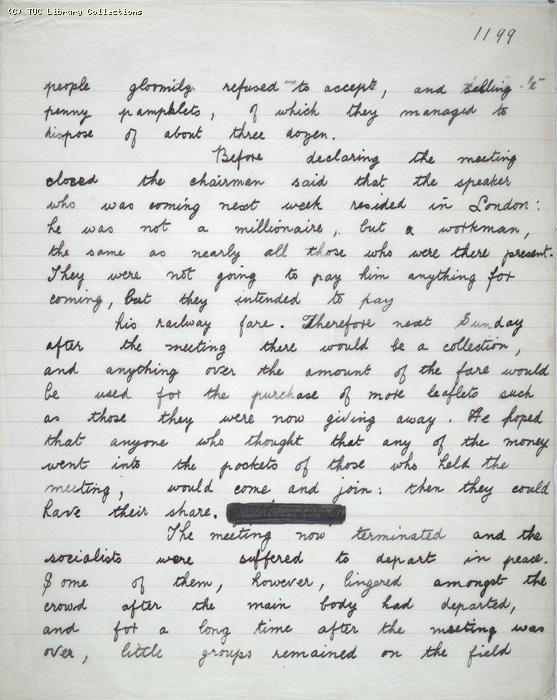 (C) TUC Library Collections
1199
people gloomily refused to accept, and selling
penny pamphlets, of which they managed to
dispose of about three dozen.
Before declaring the meeting
closed the chairman said that the speaker
who was coming next week resided in London:
he was not a millionaire, but a workman,
the same as nearly all those who were there present.
They were not going to pay him anything for
coming, but they intended to pay
his railway fare. Therefore next Sunday
after the meeting there would be a collection,
and anything over the amount of the fare would
be used for the purchase of more leaflets such
as those they were now giving away. He hoped
that anyone who thought that any of the money
went into the pockets of those who held the
meeting, would come and join: then they could
have their share.
The meeting now terminated and the
socialists were suffered to depart in peace.
Some of them, however, lingered amongst the
crowd after the main body had departed,
and for a long time after the meeting was
over, little groups remained on the field